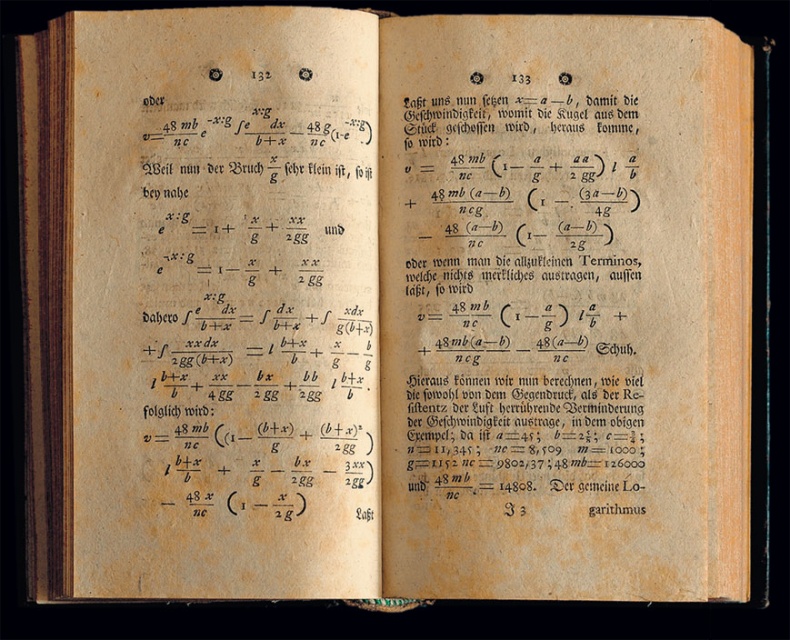 132
oder
v = 48 mb/nc e^{-x:g} ∫ e^{x:g} dx/(b+x) — 48 g/nc (1-e^{-x:g})
Weil nun der Bruch x/g sehr klein ist, so ist
bey nahe
e^{x:g} = 1 + x/g + xx/2gg und
e^{-x:g} = 1 — x/g + xx/2gg
dahero ∫ e^{x:g} dx/(b+x) = ∫ dx/(b+x) + ∫ xdx/g(b+x)
+ ∫ xxdx/2gg(b+x) = l (b+x)/b + x/g — b/g
l (b+x)/b + xx/4gg — bx/2gg + bb/2gg l (b+x)/b .
folglich wird:
v = 48 mb/nc ((1 — (b+x)/g + (b+x)²/2gg)
l (b+x)/b + x/g — bx/2gg — 3xx/2gg)
— 48 x/nc (1 — x/2g)
Laßt
133
Laßt uns nun setzen x = a — b, damit die
Geschwindigkeit, womit die Kugel aus dem
Stück geschossen wird, heraus komme,
so wird:
v = 48 mb/nc (1 — a/g + aa/2gg) l a/b
+ 48 mb (a—b)/ncg (1 — (3a—b)/4g)
— 48 (a—b)/nc (1 — (a—b)/2g)
oder wenn man die allzukleinen Terminos,
welche nichts merkliches austragen, aussen
läßt, so wird
v = 48 mb/nc (1 — a/g) l a/b +
+ 48 mb (a—b)/ncg — 48 (a—b)/nc Schuh.
Hieraus können wir nun berechnen, wie viel
die sowohl von dem Gegendruck, als der Re-
sistentz der Luft herrührende Verminderung
der Geschwindigkeit austrage, in dem obigen
Exempel; da ist a=45; c=
n=11,345; nc=8,509 m=1000;
g=1152 nc=9802,37; 48 mb=126000
und 48 mb/nc = 14808. Der gemeine Lo-
J 3 garithmus